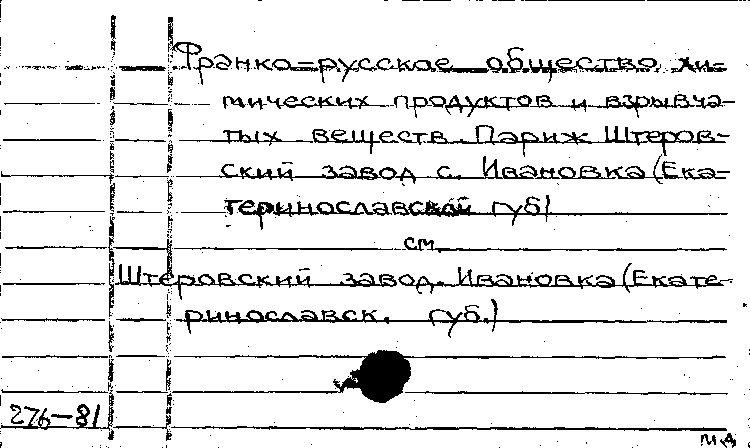 Франко-русское общество хи-
мических продуктов и взрывча-
тых веществ. Париж Штеров-
ский завод с. Ивановка (Ека-
теринославской губ)
см.
Штеровский завод. Ивановка (Екате-
ринославск. губ.)
276-81
м.д